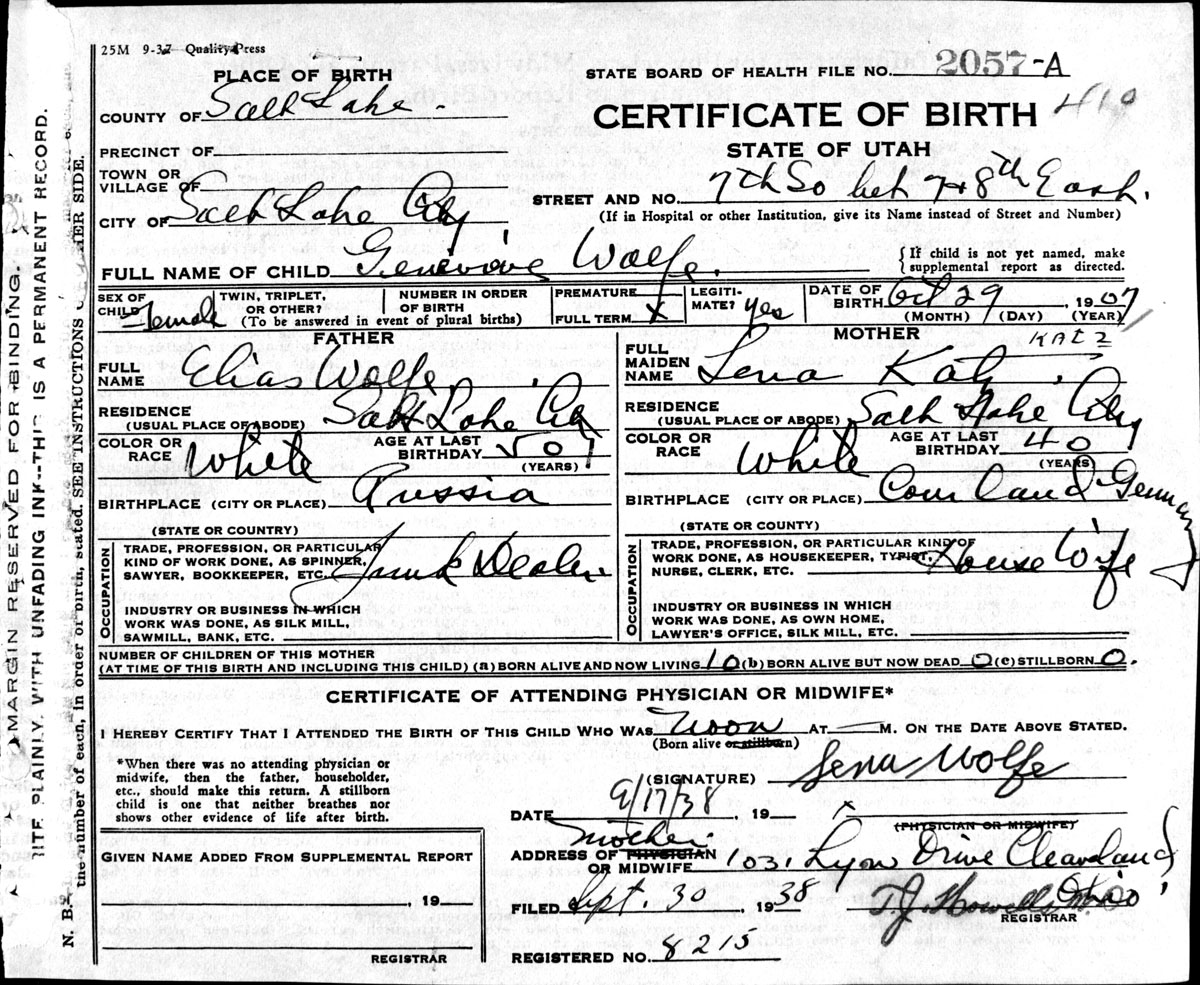 25M 9-37 Quality Press
PLACE OF BIRTH
COUNTY OF Salt Lake.
PRECINCT OF
TOWN OR
VILLAGE OF
CITY OF Salt Lake City
STATE BOARD OF HEALTH FILE NO. 2057-A
CERTIFICATE OF BIRTH 410
STATE OF UTAH
STREET AND NO. 7th So bet 7 & 8th East.
(If in Hospital or other Institution, give its Name instead of Street and Number)
FULL NAME OF CHILD Genevieve Wolfe.
{If child is not yet named, make
supplemental report as directed.
SEX OF
CHILD Female
TWIN, TRIPLET,
OR OTHER?
NUMBER IN ORDER
OF BIRTH
(To be answered in event of plural births)
PREMATURE
FULL TERM X
LEGITI-
MATE? yes
DATE OF
BIRTH Oct 29, 1907
(MONTH) (DAY) (YEAR)
FATHER
FULL
NAME Elias Wolfe
RESIDENCE
(USUAL PLACE OF ABODE) Salt Lake City
COLOR OR
RACE White
AGE AT LAST
BIRTHDAY 50
(YEARS)
BIRTHPLACE (CITY OR PLACE) Russia
(STATE OR COUNTRY)
OCCUPATION
TRADE, PROFESSION, OR PARTICULAR
KIND OF WORK DONE, AS SPINNER,
SAWYER, BOOKKEEPER, ETC. Junk Dealer
INDUSTRY OR BUSINESS IN WHICH
WORK WAS DONE, AS SILK MILL,
SAWMILL, BANK, ETC.
MOTHER KATZ
FULL
MAIDEN
NAME Lena Katz
RESIDENCE
(USUAL PLACE OF ABODE) Salt Lake City
COLOR OR
RACE White
AGE AT LAST
BIRTHDAY 40
(YEARS)
BIRTHPLACE (CITY OR PLACE) Courland Germany
(STATE OR COUNTY)
OCCUPATION
TRADE, PROFESSION, OR PARTICULAR KIND OF
WORK DONE, AS HOUSEKEEPER, TYPIST,
NURSE, CLERK, ETC. House Wife
INDUSTRY OR BUSINESS IN WHICH
WORK WAS DONE, AS OWN HOME,
LAWYER'S OFFICE, SILK MILL, ETC.
NUMBER OF CHILDREN OF THIS MOTHER
(AT TIME OF THIS BIRTH AND INCLUDING THIS CHILD) (a) BORN ALIVE AND NOW LIVING 10 (b) BORN ALIVE BUT NOW DEAD 0 (c) STILLBORN 0.
CERTIFICATE OF ATTENDING PHYSICIAN OR MIDWIFE*
I HEREBY CERTIFY THAT I ATTENDED THE BIRTH OF THIS CHILD WHO WAS Noon AT — M. ON THE DATE ABOVE STATED.
(Born alive or stillborn)
*When there was no attending physician or
midwife, then the father, householder,
etc., should make this return. A stillborn
child is one that neither breathes nor
shows other evidence of life after birth.
(SIGNATURE) Lena Wolfe
DATE 9/17/38, 19 X
(PHYSICIAN OR MIDWIFE)
mother
ADDRESS OF PHYSICIAN
OR MIDWIFE 1031 Lyon Drive Cleaveland
Ohio
FILED Sept. 30 1938
T. J. Howells
REGISTRAR
REGISTERED NO. 8215
GIVEN NAME ADDED FROM SUPPLEMENTAL REPORT
19
REGISTRAR
MARGIN RESERVED FOR BINDING.
WRITE PLAINLY, WITH UNFADING INK--THIS IS A PERMANENT RECORD.
N. B.
the number of each, in order of birth, stated. SEE INSTRUCTIONS OTHER SIDE.